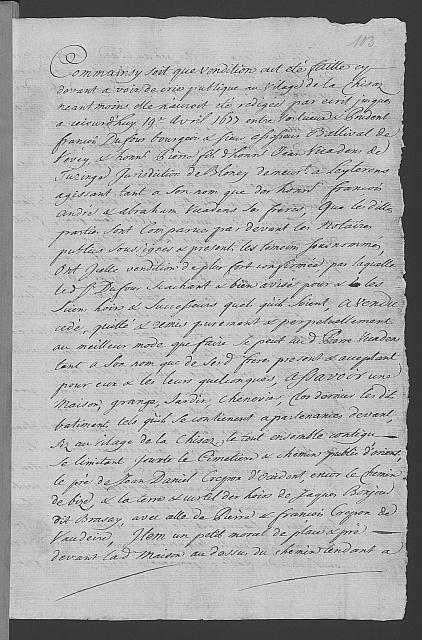 103
Commainsy soit que vendition ait été faitte cy
devant a voix de cries publique au Vilage de la Chisaz
neant moins elle n'auroit eté redigée par ecrit jusques
a ce jourd'huy 19e Avril 1677 entre
françois Dufour bourgeois & Ballival de
Vevey & honnê Pierre fils d'honnê Jean
Jurisdiction de Blonay demeurt a
agissant tant a son nom que des honnê françois
André & abraham ses freres, Que les dites
parties sont Comparus par devant les Notaires
publics soussignés & present les temoins
Ont Icelle vendition de plus fort confirmée par laquelle
led Sr Dufour Scachant & bien avisé pour & les
Siens hoirs & Successeurs quels qu'ils soient, a vendu
cédé, quitté & remis purement & perpetuellement
au meilleur mode que faire se peut aud Pierre
tant a Son nom que de Sesd freres present & acceptant
pour eux & les leurs quelconques, Assavoir une
Maison, grange, Jardin, Chenevie, Clos dernier les dits
batiment, tels qu'ils se contienent apartenances devant
& au Vilage de la Chisaz, le tout ensemble contigu
Se limitant Jouxte le Cimetiere & chemin public d'orient,
le pré de Jean Daniel Crepon d'Occident, encor le chemin
de bize & la terre & curtil des hoirs de Jaques Bonjour
dit Brasay, avec celle de Pierre & françois Crepon de
Vaudeire, Item un petit morcel de place & pré
devant lad Maison au dessus du chemin tendant a